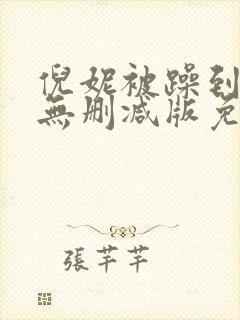 倪妮被躁到
無删减版免
張芊芊